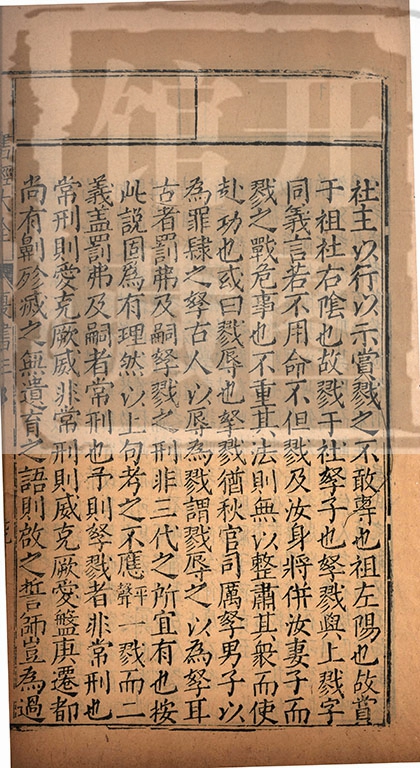 社主以行以示賞戮之不敢專也祖左陽也故賞
于祖社右陰也故戮于社孥子也孥戮與上戮字
同義言若不用命不但戮及汝身將併汝妻子而
戮之戰危事也不重其法則無以整肅其衆而使
赴功也或曰戮辱也孥戮猶秋官司厲孥男子以
為罪隸之孥古人以辱為戮謂戮辱之以為孥耳
古者罰弗及嗣孥戮之刑非三代之所宜有也按
此說固為有理然以上句考之不應平聲一戮而二
義盖罰弗及嗣者常刑也予則孥戮者非常刑也
常刑則愛克厥威非常刑則威克厥愛盤庚遷都
尚有劓殄滅之無遺育之語則啟之誓師豈為過
書經大全
夏書三